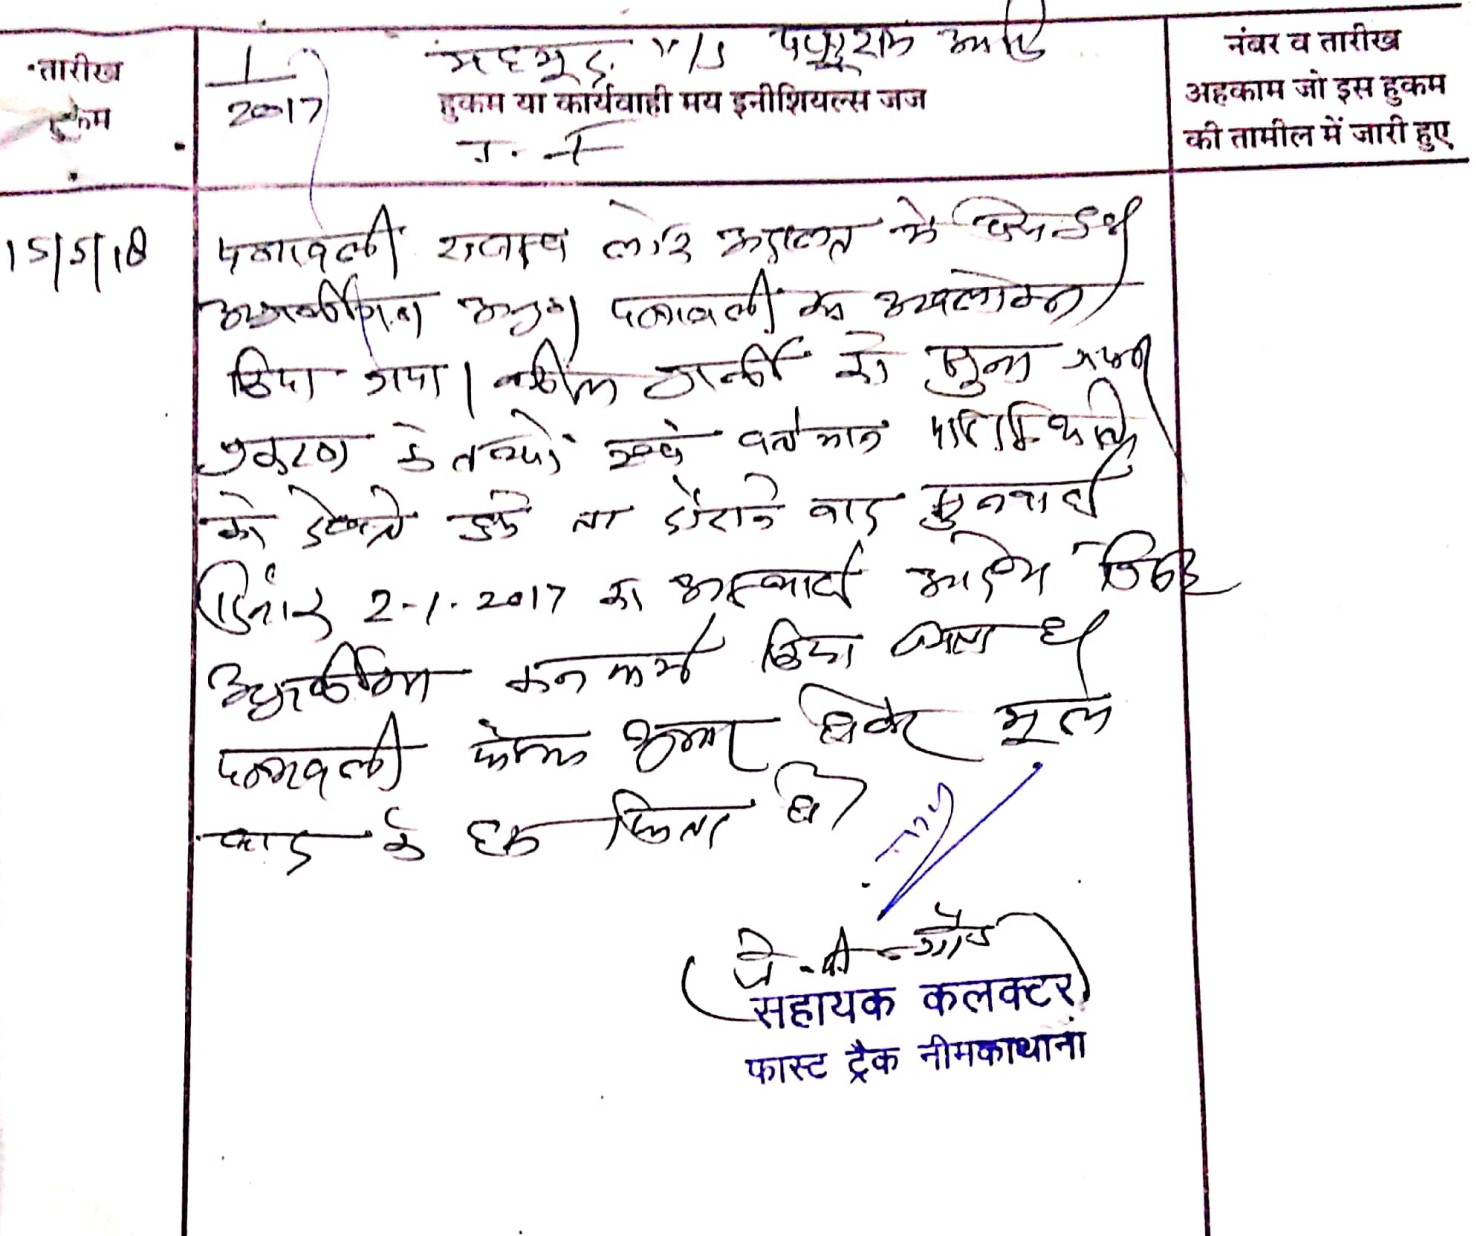 तारीख
हुकम
1/2017
महमूद v/s
हुकम या कार्यवाही मय इनीशियल्स जज
T. I
नंबर व तारीख
अहकाम जो इस हुकम
की तामील में जारी हुए
15/5/18
पत्रावली राजस्व लोक अदालत में
पत्रावली का अवलोकन
किया गया। वकील प्रार्थी को सुना गया
प्रकरण के तथ्यों एवं वर्तमान परिस्थिति
को देखते हुये ता दौराने वाद सुनवाई
दिनांक 2-1-2017 का अस्थाई आदेश
किया जाता है
पत्रावली फैसल शुमार होकर मूल
वाद के हक किता हो
जे. पी. गौड
सहायक कलक्टर
फास्ट ट्रैक नीमकाथाना